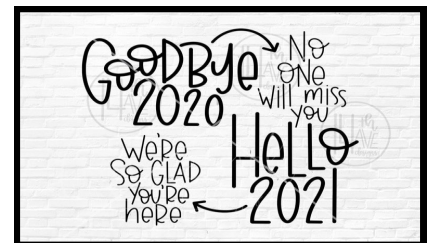 GooDBye
2020
No
oNe
will miss
you
HeLLo
2021
We're
So GLAD
you're
here